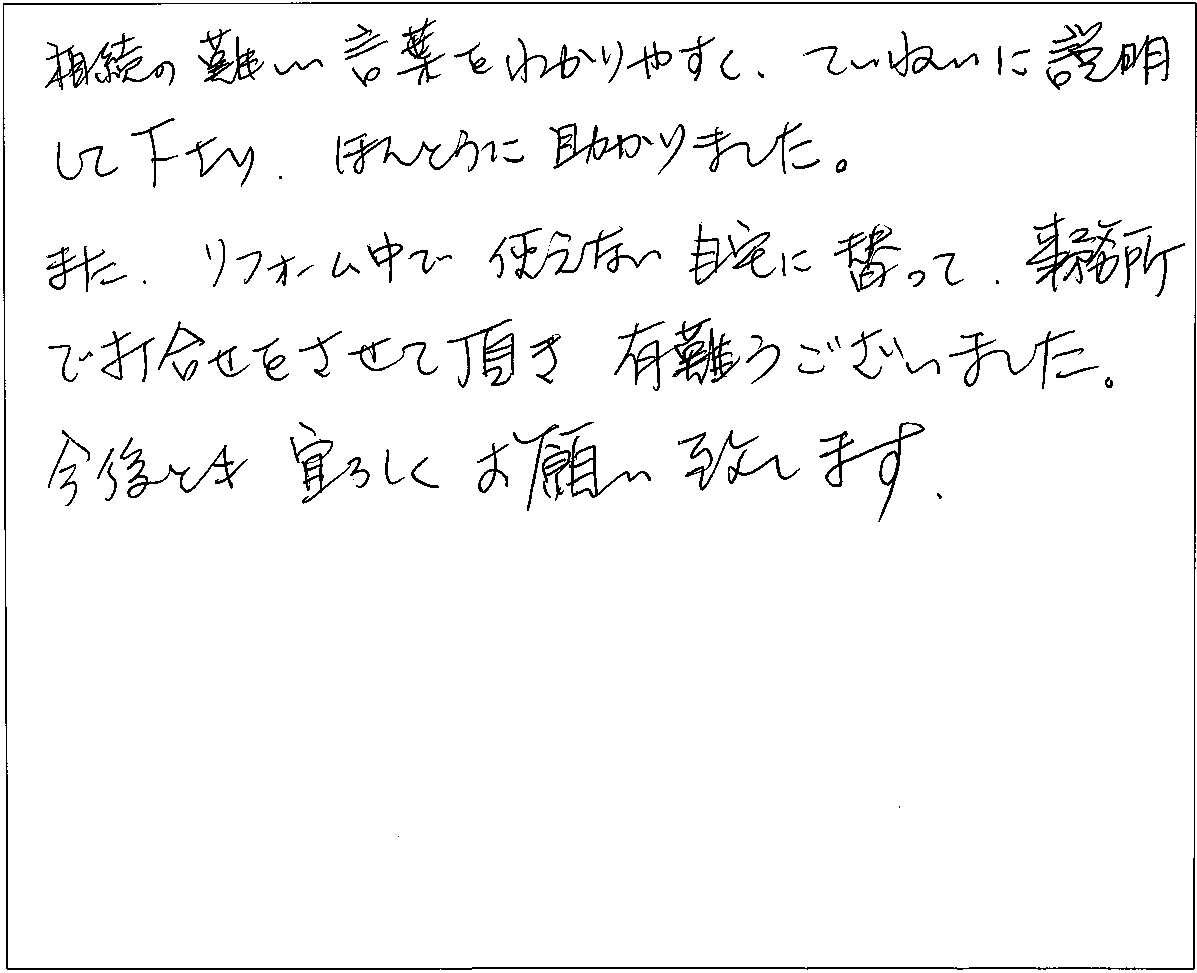 相続の難い言葉をわかりやすく、ていねいに説明
して下さり、ほんとうに助かりました。
また、リフォーム中で使えない自宅に替って、事務所
で打合せをさせて頂き有難うございました。
今後とも宜ろしくお願い致します、